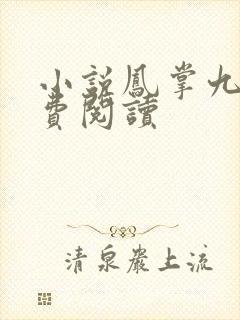 小説鳳掌九
費閱讀
清泉巖上流